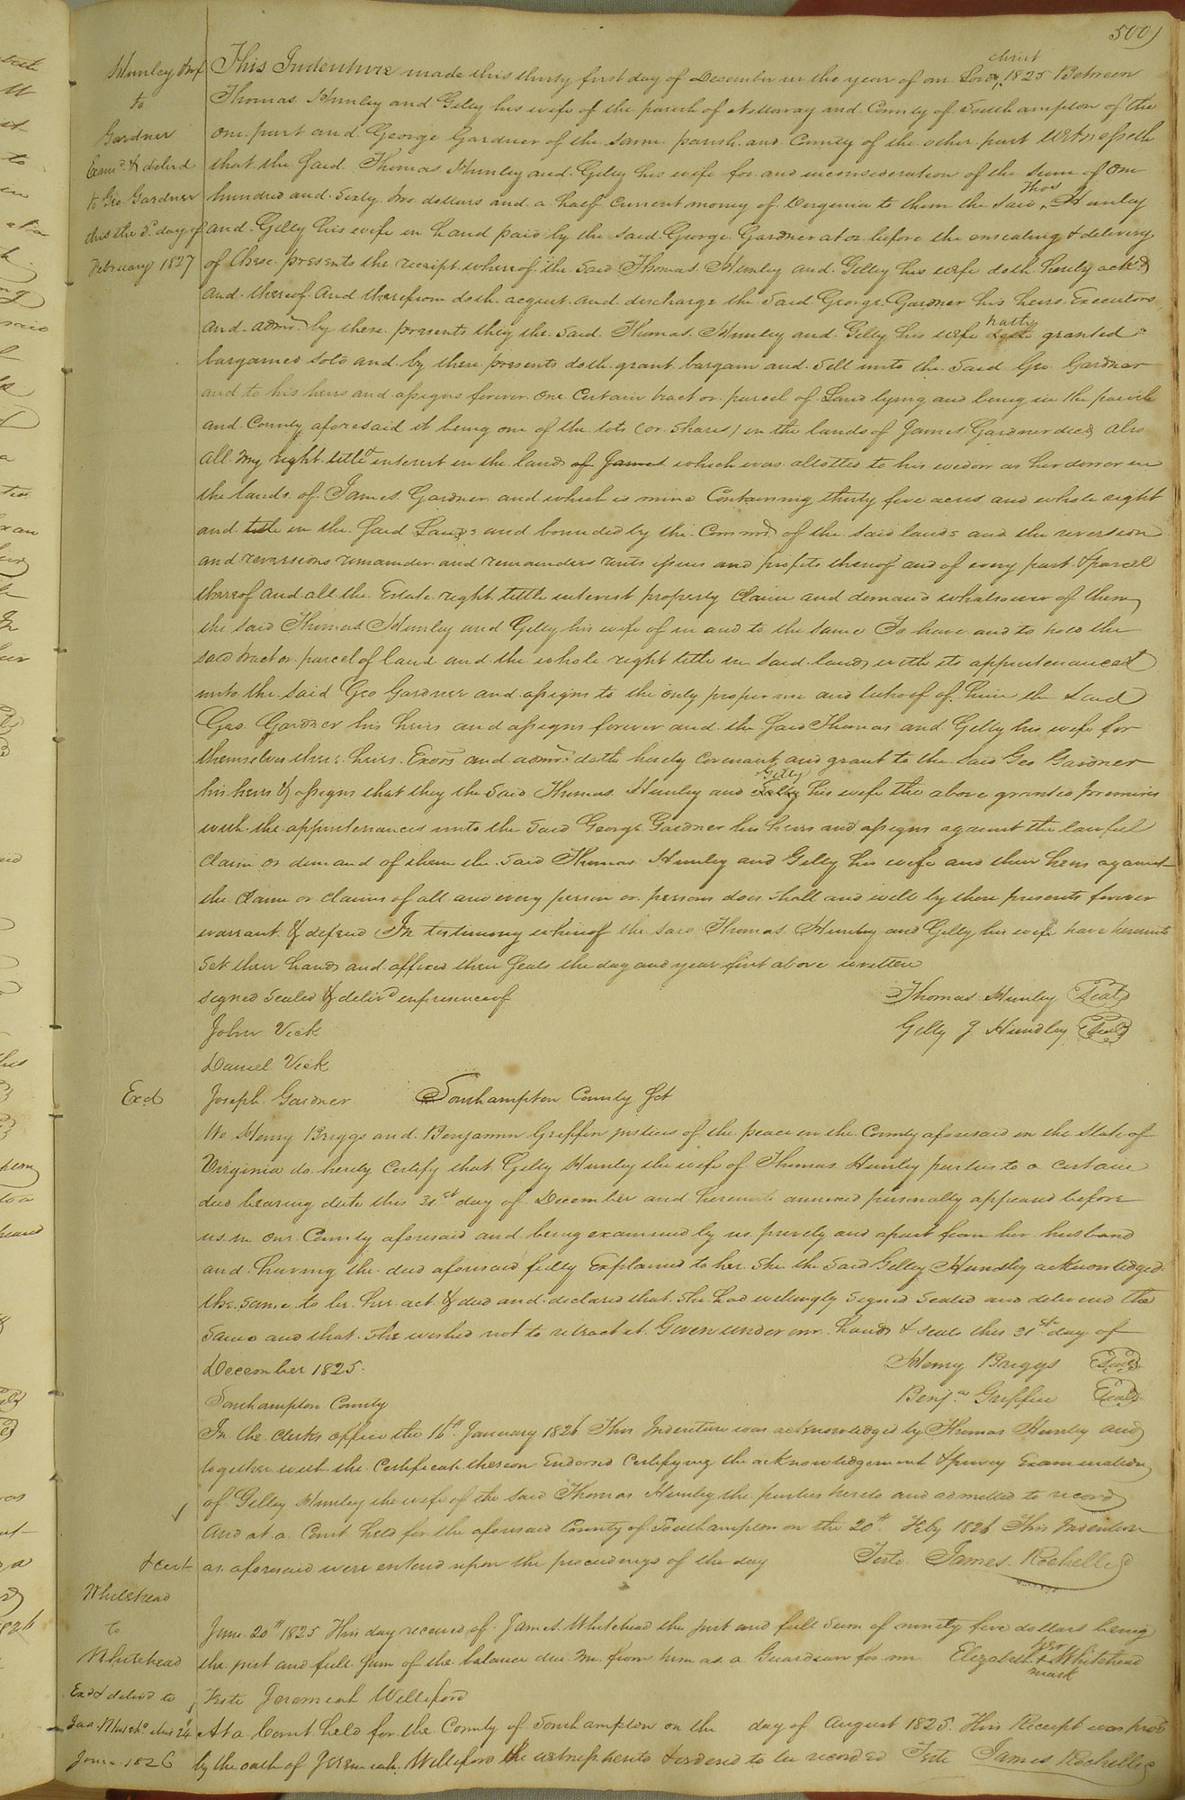 500)
Hunley & wf
to
Gardner
Exam.d & delivd
to Geo Gardner
this the 3.d day of
February 1827
christ
This Indenture made this thirty first day of December in the year of our Lord, 1825 Between
Thomas Hunley and Gilley his wife of the parish of Nottoway and County of Southampton of the
one part and George Gardner of the same parish and County of the other part Witnesseth
that the said Thomas Hunley and Gilley his wife for and in consideration of the sum of One
hundred and Sixty two dollars and a half Current money of Virginia to them the said Thos Hunley
and Gilly his wife in hand paid by the said George Gardner at or before the ensealing & delivery
of these presents the receipt whereof the said Thomas Hunley and Gilley his wife doth hereby ackd
and thereof and therefrom doth acquit and discharge the said George Gardner his heirs Executors
and admrs by these presents they the said Thomas Hunley and Gilly his wife hath granted
bargained sold and by these presents doth grant bargain and sell unto the said Geo Gardner
and to his heirs and assigns forever One Certain tract or parcel of Land lying and being in the parish
and County aforesaid it being one of the lots (or shares) in the lands of James Gardner decd also
all my right title interest in the land of James which was allotted to his widow as her dower in
the lands of James Gardner and which is mine Containing thirty five acres and whole right
and title in the said Lands and bounded by the of the said lands and the reversion
and reversions remainder and remainders rents issues and profits thereof and of every part & parcel
thereof and all the Estate right title interest property Claim and demand whatsoever of them
the said Thomas Hunley and Gilly his wife of in and to the same To have and to hold the
said tract or parcel of land and the whole right title in said land with its appurtenances
unto the said Geo Gardner and assigns to the only proper use and behoof of him the said
Geo Gardner his heirs and assigns forever and the said Thomas and Gilly his wife for
themselves their heirs Exors and admrs doth hereby Covenant and grant to the said Geo Gardner
his heirs & assigns that they the said Thomas Hunley and Gilly his wife the above granted premises
with the appurtenances unto the said George Gardner his heirs and assigns against the lawful
Claim or demand of them the said Thomas Hunley and Gilly his wife and their heirs against
the claim or claims of all and every person or persons does shall and will by these presents forever
warrant & defend In testimony whereof the said Thomas Hunley and Gilly his wife have hereunto
set their hands and affixed their Seals the day and year first above written
signed sealed & delivd in presence of
Thomas Hunley Seal
John Vick
Gilly J Hundley Seal
Daniel Vick
Exd
Joseph Gardner
Southampton County Sct
We Henry Briggs and Benjamin Griffin justices of the peace in the County aforesaid in the State of
Virginia do hereby Certify that Gilly Hunley the wife of Thomas Hunley parties to a certain
deed bearing date this 31st day of December and hereunto annexed personally appeared before
us in our County aforesaid and being examined by us privily and apart from her husband
and having the deed aforesaid fully Explained to her She the said Gilley Hundley acknowledged
the same to be her act & deed and declared that she had willingly signed sealed and delivered the
same and that she wished not to retract it Given under our hands & seals this 31st day of
December 1825.
Henry Briggs Seal
Benj.a Griffin Seal
Southampton County
In the clerks office the 16th January 1826 This Indenture was acknowledged by Thomas Hunley and
together with the Certificate thereon Endorsed Certifying the acknowledgement & privy Examination
of Gilley Hunley the wife of the said Thomas Hunley the parties hereto and admitted to record
And at a Court held for the aforesaid County of Southampton on the 20th Feby 1826 This Indenture
& cert
as aforesaid were entered upon the proceedings of the day
Teste James Rochelle
Whitehead
to
Whitehead
Exd & delivd to
Jas. Whithd this 24
June 1826
June 20th 1825 This day received of James Whitehead the just and full Sum of ninety five dollars being
the just and full Sum of the balance due me from him as a Guardian for me Elizabeth her + mark Whitehead
Teste Jeremiah Williford
At a Court held for the County of Southampton on the day of August 1825. This Receipt was provd
by the oath of Jeremiah Williford the witness hereto & ordered to be recorded Teste James Rochelle